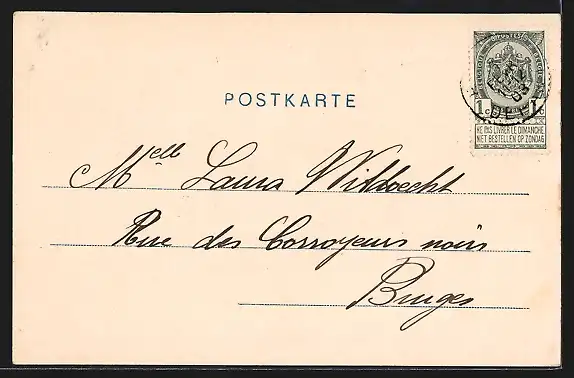 POSTES
BELGIQUE
BELGIE
1c 1c
NE PAS LIVRER LE DIMANCHE
NIET BESTELLEN OP ZONDAG
POSTKARTE
Melle Laura Witdoecht
Rue des Corroyeurs noirs
Bruges